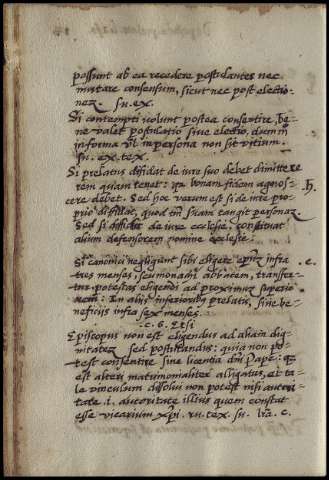 possunt ab ea recedere postulantes nec
mutare consensum, sicut nec post electio-
nez. su. ex.
Si contempti volunt postea consentire, be-
ne valet postulatio sive electio, dum in
in forma vl in persona non sit vitium.
su. ex. tex.
Si prelatus diffidat de iure suo debet dimittere
rem quam tenet: qa bonam fidem agnos-
cere debet. Sed hoc verum est si de iure pro-
prio diffidat, quod suam tangit personaz
Sed si diffidit de iure ecclesie, constituat
alium defensorem nomine ecclesie.
Si canonici negligunt sibi eligere infra .c.
tres menses, transfer-
tur potestas eligendi ad proximum superio
rem: In aliis inferioribus prelatis, sive be-
neficiis infra sex menses.
.c. 6. Etsi
Episcopus non est eligendus ad aliam dig
nitatez sed postulandus: quia non po-
test consentire sine licentia dni Pape: qa
est alteri matrimonialiter alligatus, et ta-
le vinculum dissolui non potest nisi autori
tate .i. autoritate illius quem constat
esse vicarium xpi. ex. tex. su. c.